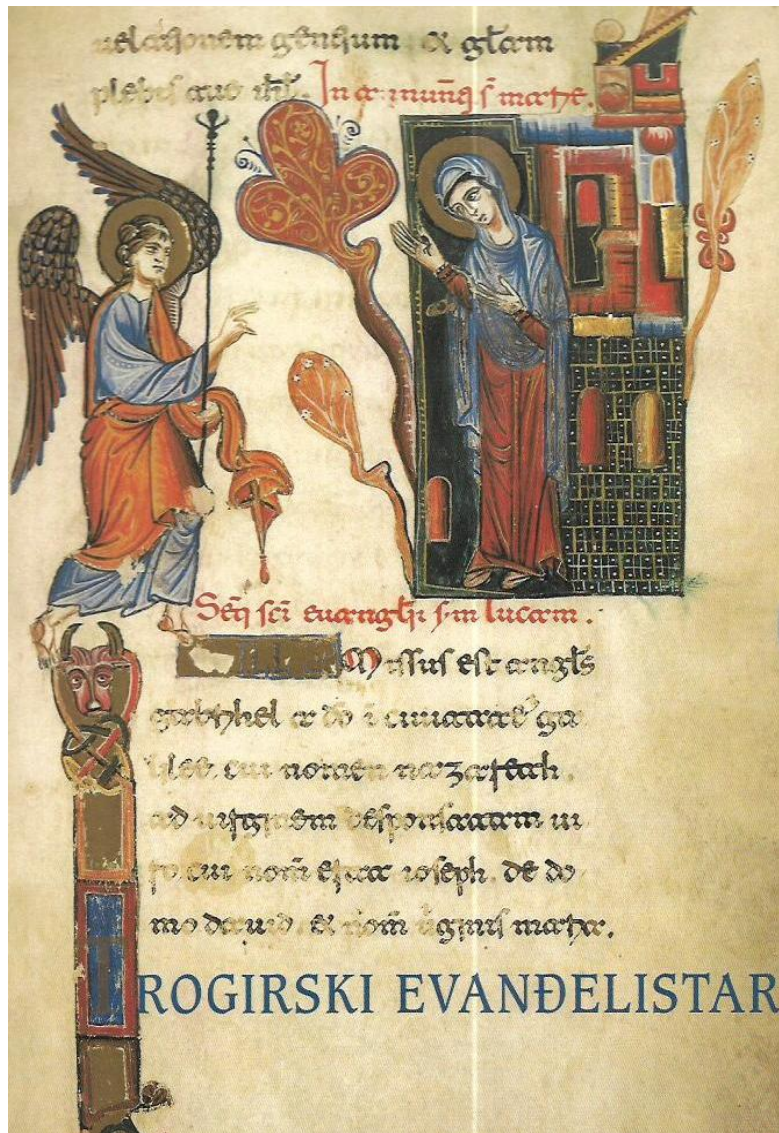 uelationem gentium & gl̃am
plebis tue isrl̃. In s̃ marie.
Seq̃ sc̃i euangl̃ii s̃m lucam.
Missus est angl̃s
gabrihel a dō i ciuitatē ga
lilee cui nomen nazareth.
ad uirginem desponsatam ui
ro cui nom̃ erat ioseph. de do
mo dauid & nom̃ ũginis maria.
TROGIRSKI EVANĐELISTAR